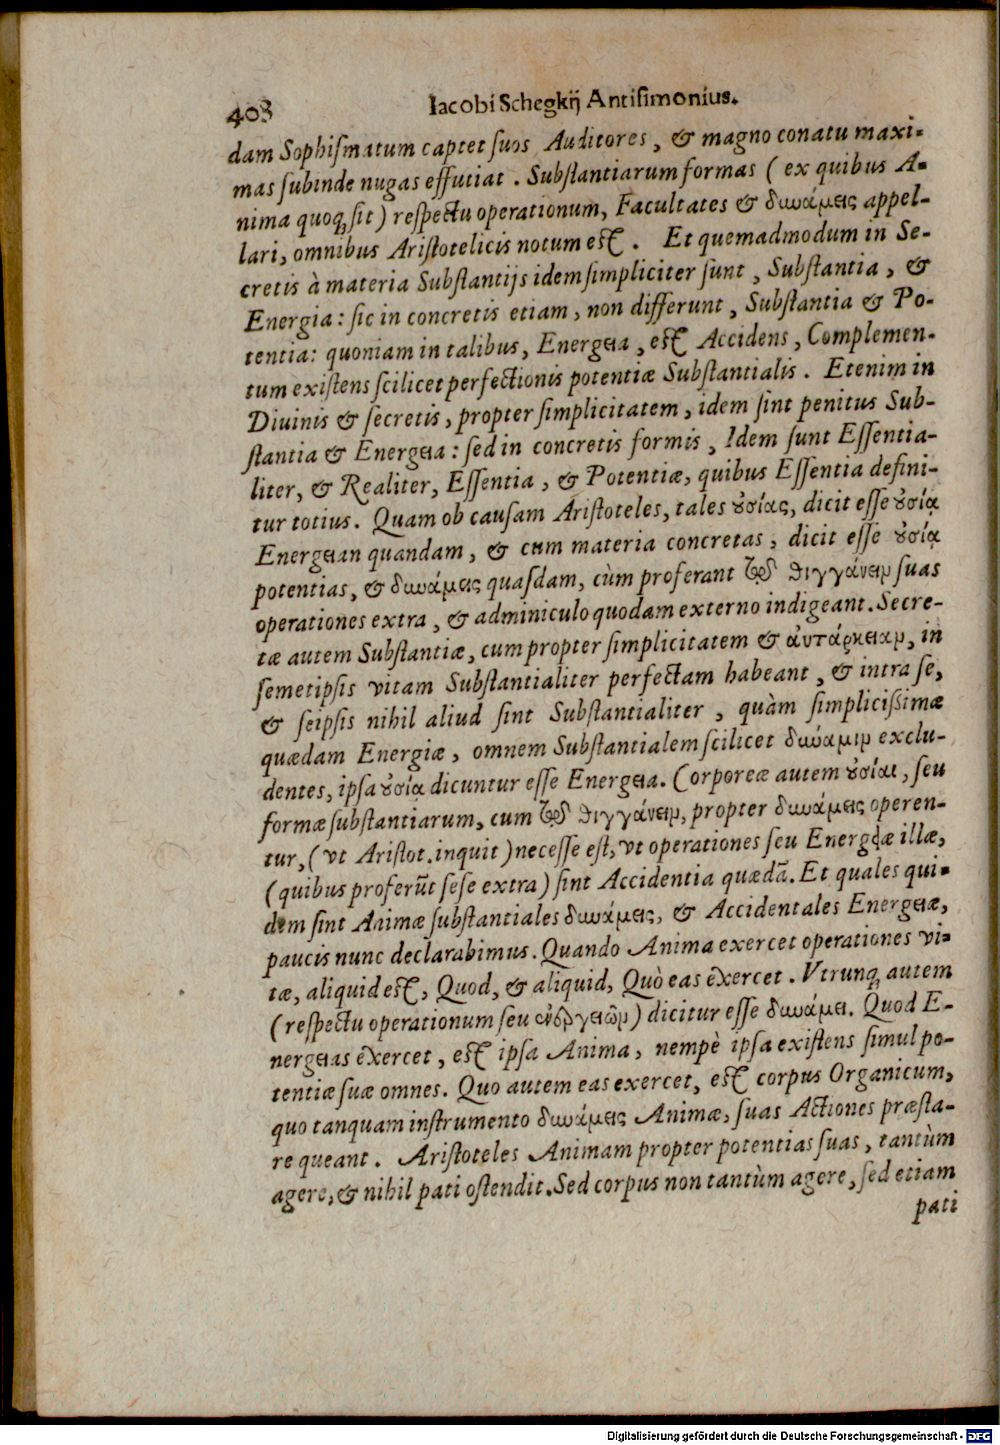 408 Iacobi Schegkij Antisimonius.
dam Sophiſmatum captet ſuos Auditores, & magno conatu maxi-
mas ſubinde nugas effutiat. Subſtantiarum formas (ex quibus A-
nima quoq; ſit) reſpectu operationum, Facultates & δυνάμεις appel-
lari, omnibus Ariſtotelicis notum eſt. Et quemadmodum in Se-
cretis à materia Subſtantijs idem ſimpliciter ſunt, Subſtantia, &
Energia: ſic in concretis etiam, non differunt, Subſtantia & Po-
tentia: quoniam in talibus, Energeia, eſt Accidens, Complemen-
tum exiſtens ſcilicet perfectionis potentiæ Subſtantialis. Etenim in
Diuinis & ſecretis, propter ſimplicitatem, idem ſint penitus Sub-
ſtantia & Energeia: ſed in concretis formis, Idem ſunt Eſſentia-
liter, & Realiter, Eſſentia, & Potentiæ, quibus Eſſentia defini-
tur totius. Quam ob cauſam Ariſtoteles, tales ȣσίας, dicit eſſe ȣσίᾳ
Energeian quandam, & cum materia concretas, dicit eſſe ȣσίᾳ
potentias, & δυνάμεις quaſdam, cùm proferant τῷ θιγγάνειν ſuas
operationes extra, & adminiculo quodam externo indigeant. Secre-
tæ autem Subſtantiæ, cum propter ſimplicitatem & αὐτάρκειαν, in
ſemetipſis vitam Subſtantialiter perfectam habeant, & intra ſe,
& ſeipſis nihil aliud ſint Subſtantialiter, quàm ſimpliciſſimæ
quædam Energiæ, omnem Subſtantialem ſcilicet δυνάμιν exclu-
dentes, ipſa ȣσίᾳ dicuntur eſſe Energeia. Corporeæ autem ȣσίαι, ſeu
formæ ſubſtantiarum, cum τῷ θιγγάνειν, propter δυνάμεις operen-
tur, (vt Ariſtot. inquit) neceſſe eſt, vt operationes ſeu Energeiæ illæ,
(quibus proferūt ſeſe extra) ſint Accidentia quædā. Et quales qui-
dem ſint Animæ ſubſtantiales δυνάμεις, & Accidentales Energeiæ,
paucis nunc declarabimus. Quando Anima exercet operationes vi-
tæ, aliquid eſt, Quod, & aliquid, Quò eas exercet. Vtrunq; autem
(reſpectu operationum ſeu ἐνεργειῶν) dicitur eſſe δυνάμει. Quod E-
nergeias exercet, eſt ipſa Anima, nempè ipſa exiſtens ſimul po-
tentiæ ſuæ omnes. Quo autem eas exercet, eſt corpus Organicum,
quo tanquam inſtrumento δυνάμεις Animæ, ſuas Actiones præſta-
re queant. Ariſtoteles Animam propter potentias ſuas, tantùm
agere, & nihil pati oſtendit. Sed corpus non tantùm agere, ſed etiam
pati
Digitalisierung gefördert durch die Deutsche Forschungsgemeinschaft - DFG